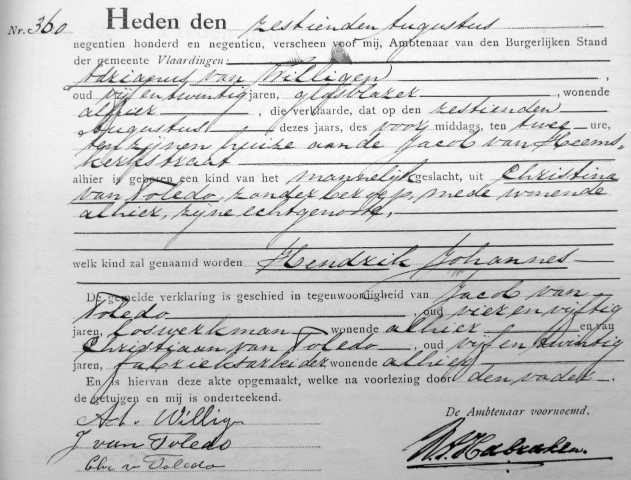 Nr. 360 Heden den zestienden Augustus
negentien honderd en negentien, verscheen voor mij, Ambtenaar van den Burgerlijken Stand
der gemeente Vlaardingen:
Adrianus van Willigen,
oud vijf en twintig jaren, glasblazer, wonende
alhier, die verklaarde, dat op den zestienden
Augustus dezes jaars, des voor middags, ten twee ure,
ten zijnen huize aan de Jacob van Heems-
kerkstraat
alhier is geboren een kind van het mannelijk geslacht, uit Christina
van Toledo, zonder beroep, mede wonende
alhier, zijne echtgenoote,
welk kind zal genaamd worden Hendrik Johannes
De gemelde verklaring is geschied in tegenwoordigheid van Jacob van
Toledo, oud vier en vijftig
jaren, loswerkman wonende alhier en van
Christiaan van Toledo, oud vijf en twintig
jaren, fabrieksarbeider wonende alhier
En is hiervan deze akte opgemaakt, welke na voorlezing door den vader
de getuigen en mij is onderteekend.
De Ambtenaar voornoemd,
Ad. v. Willigen
J van Toledo
Chr v Toledo
Habraken